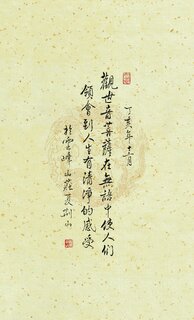 丁亥年十二月
觀世音菩薩在無語中使人们
領會到人生有清淨的感受
於雲峰山莊夏荆山